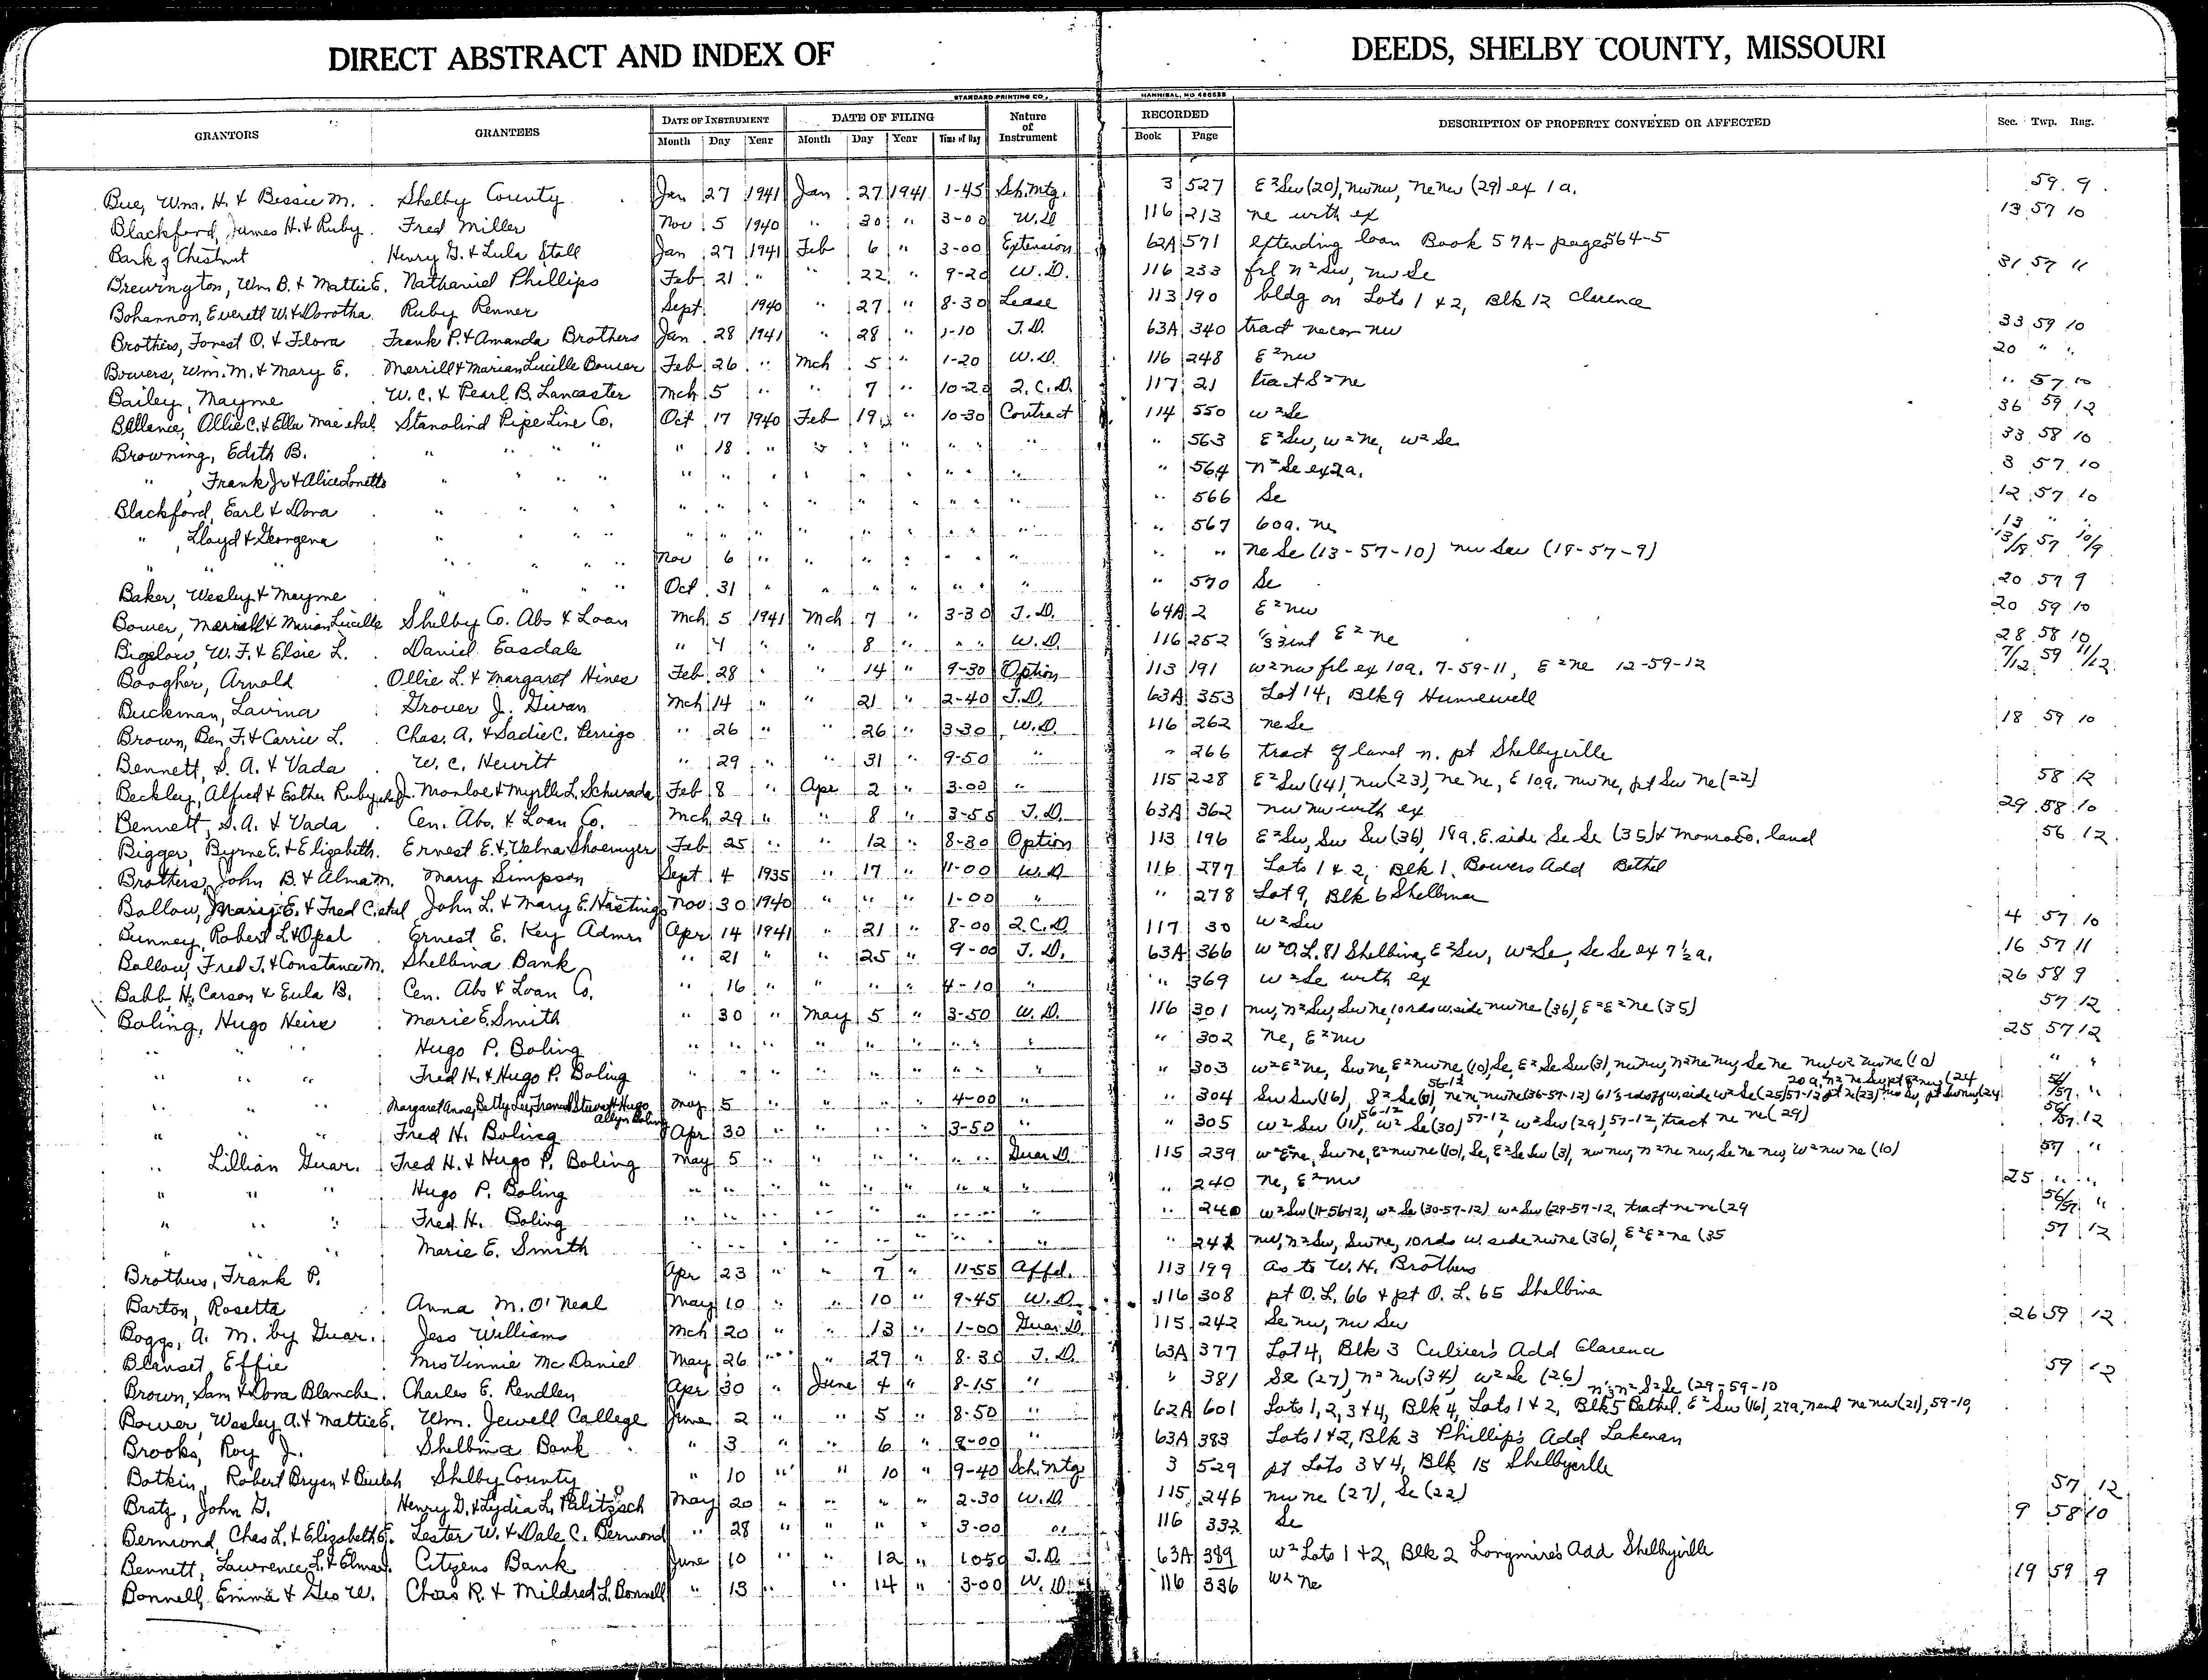 DIRECT ABSTRACT AND INDEX OF DEEDS, SHELBY COUNTY, MISSOURI
STANDARD PRINTING CO., HANNIBAL, MO
GRANTORS GRANTEES DATE OF INSTRUMENT DATE OF FILING Nature of Instrument RECORDED DESCRIPTION OF PROPERTY CONVEYED OR AFFECTED Sec. Twp. Rng.
Month Day Year Month Day Year Time of Day Book Page
Bue, Wm. H. & Bessie M. Shelby County Jan 27 1941 Jan 27 1941 1-45 Sch. Mtg. 3 527 E²Sw (20), nwnw, nenw (29) ex 1a. 59 9
Blackford, James H. & Ruby Fred Miller Nov 5 1940 " 30 " 3-00 W.D 116 213 ne with ex 13 57 10
Bank of Chestnut Henry G. & Lula Stall Jan 27 1941 Feb 6 " 3-00 Extension 62A 571 extending loan Book 57A-pages 564-5
Brewington, Wm B. & Mattie E. Nathaniel Phillips Feb 21 " " 22 " 9-20 W.D. 116 233 frl n²Sw, nw Se 31 57 11
Bohannon, Everett W. & Dorotha Ruby Renner Sept. 1940 " 27 " 8-30 Lease 113 190 bldg on Lots 1 & 2, Blk 12 Clarence
Brothers, Forest O. & Flora Frank P. & Amanda Brothers Jan 28 1941 " 28 " 1-10 T.D. 63A 340 tract necor nw 33 59 10
Bowers, Wm. M. & Mary E. Merrill & Marian Lucille Bower Feb 26 " Mch 5 " 1-20 W.D. 116 248 E²nw 20 " "
Bailey, Mayme W. C. & Pearl B. Lancaster Mch 5 " " 7 " 10-20 Q.C.D. 117 21 tract S²ne " 57 10
Ballance, Ollie C. & Ella Mae etal Stanolind Pipe Line Co. Oct 17 1940 Feb 19 " 10-30 Contract 114 550 w²Se 36 59 12
Browning, Edith B. " " " " 18 " " " " " " " 563 E²Sw, w²ne, w²Se 33 58 10
" , Frank Jr & Alice Lonetto " " " " " " " " " " " " 564 n²Se ex 2a. 3 57 10
Blackford, Earl & Dora " " " " " " " " " " " " 566 Se 12 57 10
" , Lloyd & Georgena " " " " " " " " " " " " 567 60a. ne 13 " "
" " " " " Nov 6 " " " " " " " " ne Se (13-57-10) nw Sw (18-57-9) 13/18 57 10/9
Baker, Wesley & Mayme " " " Oct 31 " " " " " " " 570 Se 20 57 9
Bower, Merrill & Marian Lucille Shelby Co. Abs & Loan Mch 5 1941 Mch 7 " 3-30 T.D. 64A 2 E²nw 20 59 10
Bigelow, W. F. & Elsie L. Daniel Easdale " 4 " " 8 " " " W.D. 116 252 1/3 int E²ne 28 58 10
Boogher, Arnold Ollie L. & Margaret Hines Feb 28 " " 14 " 9-30 Option 113 191 w²nw frl ex 10a. 7-59-11, E²ne 12-59-12 7/12 59 11/12
Buckman, Lavina Grover J. Givan Mch 14 " " 21 " 2-40 T.D. 63A 353 Lot 14, Blk 9 Hunnewell
Brown, Ben F. & Carrie L. Chas. A. & Sadie C. Perrigo " 26 " " 26 " 3-30 W.D. 116 262 neSe 18 59 10
Bennett, S. A. & Vada W. C. Hewitt " 29 " " 31 " 9-50 " " 266 tract of land n. pt Shelbyville
Beckley, Alfred & Esther Ruby etal J. Monloe & Myrtle L. Schwada Feb 8 " Apr 2 " 3-00 " 115 228 E²Sw (14), nw (23), ne ne, E 10a. nw ne, pt Sw ne (22) 58 12
Bennett, S. A. & Vada Cen. Abs. & Loan Co. Mch 29 " " 8 " 3-55 T.D. 63A 362 nw nw with ex 29 58 10
Bigger, Byrne E. & Elizabeth Ernest E. & Velna Shoemyer Feb 25 " " 12 " 8-30 Option 113 196 E²Sw, Sw Sw (36), 18a. E. side Se Se (35) & Monroe Co. land 56 12
Brothers, John B. & Alma M. Mary Simpson Sept 4 1935 " 17 " 11-00 W.D 116 277 Lots 1 & 2, Blk 1, Bowers Add Bethel
Ballow, Mary E. & Fred C. etal John L. & Mary E. Hastings Nov 30 1940 " " " 1-00 " " 278 Lot 9, Blk 6 Shelbina
Bunney, Robert L. & Opal Ernest E. Key Admr. Apr 14 1941 " 21 " 8-00 Q.C.D 117 30 w²Sw 4 57 10
Ballow, Fred T. & Constance M. Shelbina Bank " 21 " " 25 " 9-00 T.D. 63A 366 w²O.L. 81 Shelbina, E²Sw, w²Se, Se Se ex 7½a. 16 57 11
Babb H. Carson & Eula B. Cen. Abs & Loan Co. " 16 " " " " 4-10 " " 369 w²Se with ex 26 58 9
Boling, Hugo Heirs Marie E. Smith " 30 " May 5 " 3-50 W.D. 116 301 nw, n²Sw, Sw ne, 10 rds w. side nw ne (36), E²E²ne (35) 57 12
" " " Hugo P. Boling " " " " " " " " " 302 ne, E²nw 25 57 12
" " " Fred H. & Hugo P. Boling " " " " " " " " " 303 w²E²ne, Sw ne, E²nw ne (10), Se, E²Se Sw (3), nw nw, n²ne nw, Se ne nw, w² nw ne (10) " "
" " " Margaret Anna, Betty Lee, Stewart Hugo Allyn Boling May 5 " " " " 4-00 " " 304 Sw Sw (16),
" " " Fred H. Boling Apr 30 " " " " 3-50 " " 305 w²Sw (11), 56-12 w²Se (30) 57-12, w²Sw (29), 57-12, tract ne ne (29) 56/57 12
" Lillian Guar. Fred H. & Hugo P. Boling May 5 " " " " " " Guar D. 115 239 w²E²ne, Sw ne, E²nw ne (10), Se, E²Se Sw (3), nw nw, n²ne nw, Se ne nw, w²nw ne (10) 57 "
" " " Hugo P. Boling " " " " " " " " " 240 ne, E²nw 25 " "
" " " Fred H. Boling " " " " " " " " " 240 w²Sw (11-56-12), w²Se (30-57-12) w²Sw (29-57-12, tract ne ne (29 56/57 "
" " " Marie E. Smith " " " " " " " " " 241 nw, n²Sw, Sw ne, 10 rds w. side nw ne (36), E²E²ne (35 57 12
Brothers, Frank P. Apr 23 " " 7 " 11-55 Affd. 113 199 as to W. H. Brothers
Barton, Rosetta Anna M. O'Neal May 10 " " 10 " 9-45 W.D. 116 308 pt O.L. 66 & pt O.L. 65 Shelbina
Boggs, A. M. by Guar. Jess Williams Mch 20 " " 13 " 1-00 Guar. D. 115 242 Se nw, nw Sw 26 59 12
Blanset, Effie Mrs Vinnie McDaniel May 26 " " 29 " 8-30 T.D. 63A 377 Lot 4, Blk 3 Culver's Add Clarence
Brown, Sam & Dora Blanche Charles E. Rendlen Apr 30 " June 4 " 8-15 " " 381 Se (27), n²nw (34), w²Se (26) 59 12
Bower, Wesley A. & Mattie E. Wm. Jewell College June 2 " " 5 " 8-50 " 62A 601 Lots 1, 2, 3 & 4, Blk 4, Lots 1 & 2, Blk 5 Bethel, E²Sw (16), 27a. n end ne nw (21), 59-10, n½n²S²Se (29-59-10
Brooks, Roy J. Shelbina Bank " 3 " " 6 " 9-00 " 63A 383 Lots 1 & 2, Blk 3 Phillip's Add Lakenan
Botkin, Robert Bryan & Beulah Shelby County " 10 " " 10 " 9-40 Sch. Mtg 3 529 pt Lots 3 & 4, Blk 15 Shelbyville
Bratz, John G. Henry D. & Lydia L. Palitzsch May 20 " " " " 2-30 W.D. 115 246 nw ne (27), Se (22) 57 12
Bermond, Chas L. & Elizabeth E. Lester W. & Dale C. Bermond " 28 " " " " 3-00 " 116 332 Se 9 58 10
Bennett, Lawrence L. & Elma J. Citizens Bank June 10 " " 12 " 1050 T.D. 63A 389 w²Lots 1 & 2, Blk 2 Longmire's Add Shelbyville
Bonnell, Emma & Geo W. Chas R. & Mildred L. Bonnell " 13 " " 14 " 3-00 W.D. 116 336 w²ne 19 59 9